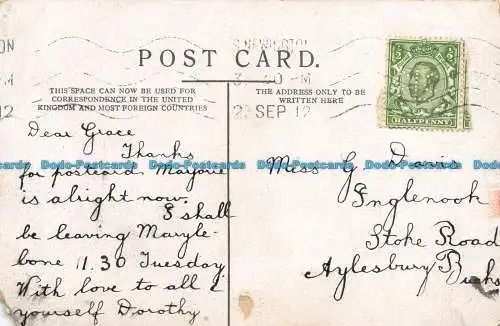 POST CARD.
THIS SPACE CAN NOW BE USED FOR
CORRESPONDENCE IN THE UNITED
KINGDOM AND MOST FOREIGN COUNTRIES
THE ADDRESS ONLY TO BE
WRITTEN HERE
SEP 12
HALFPENNY
Dear Grace
Thanks
for postcard Marjorie
is alright now.
I shall
be leaving Maryle-
bone 11.30 Tuesday
With love to all &
yourself Dorothy
Miss G Davis
Inglenook
Stoke Road
Aylesbury Bucks
Dodo-Postcards Dodo-Postcards Dodo-Postcards Dodo-Postcards Dodo-Postcards